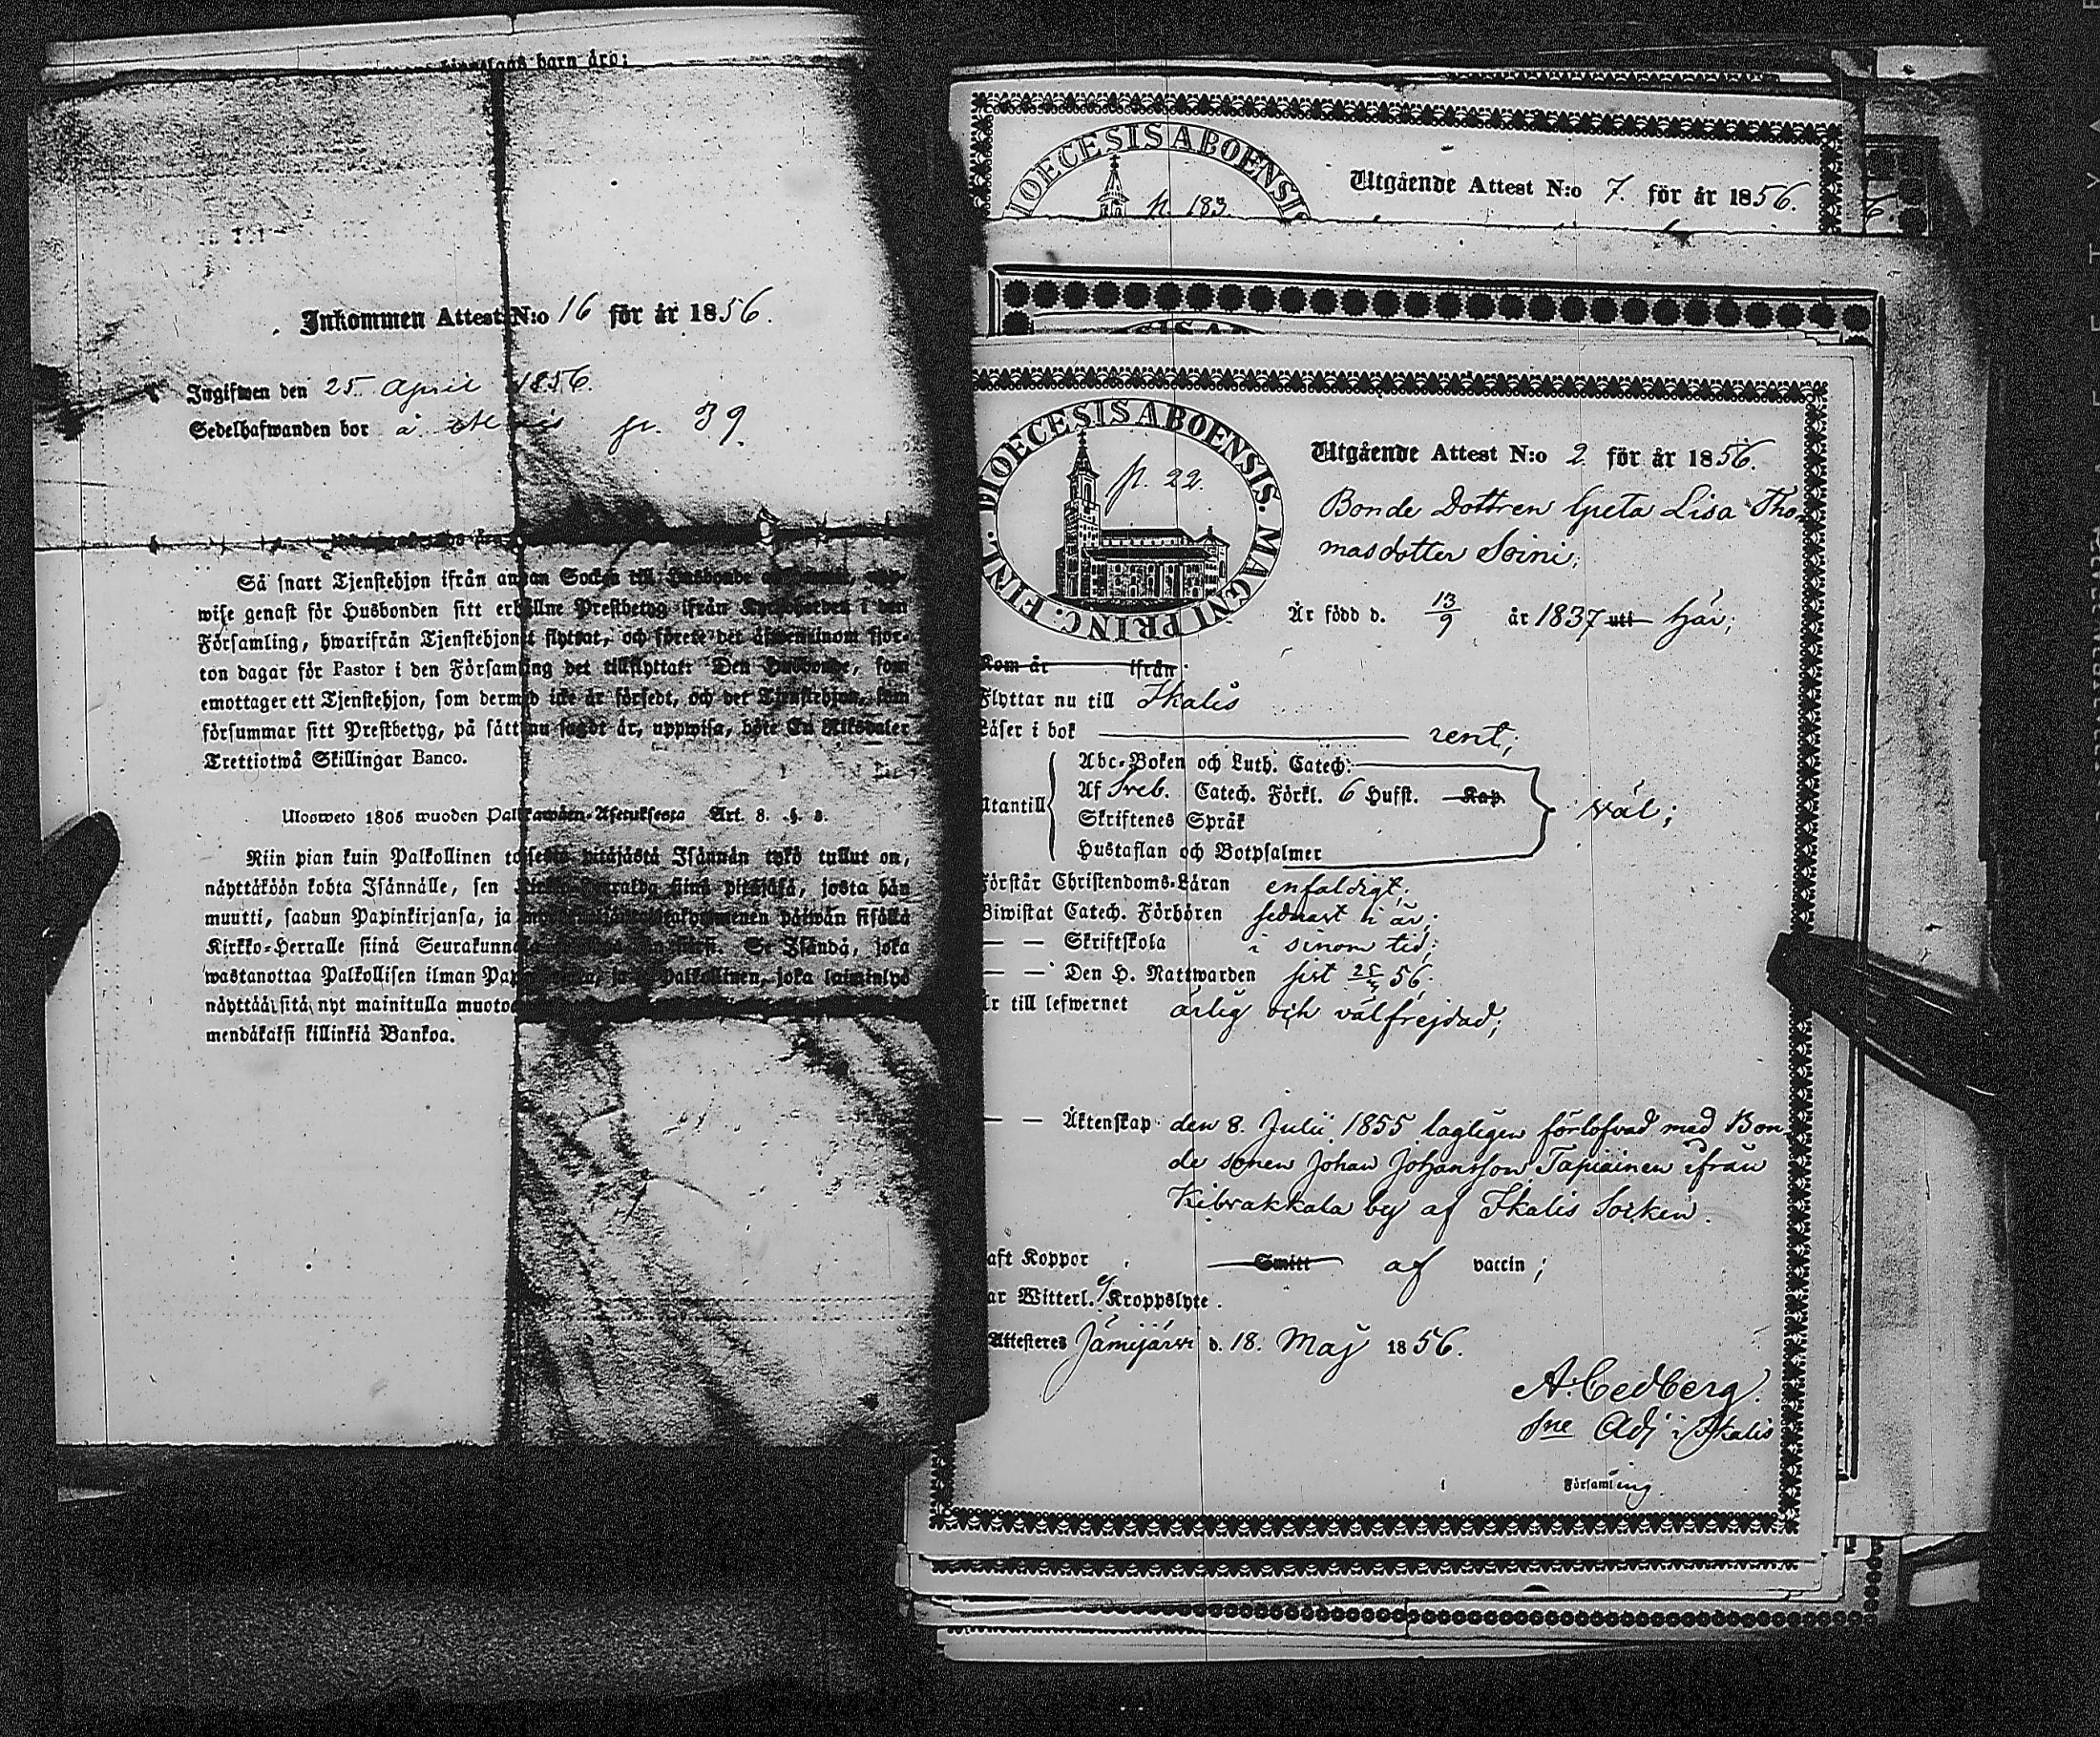 barn äro:
Inkommen Attest N:o 16 för år 1856.
Ingifwen den 25. April 1856.
Sedelhafwanden bor å p. 39.
Så snart Tjenstehjon ifrån annan Socken till Husbonde
wise genast för Husbonden sitt erhållne Prestbetyg ifrån Kyrkoherden i den
Församling, hwarifrån Tjenstehjonet flyttat, och förete det äfwen inom fjor-
ton dagar för Pastor i den Församling det tillflyttat. Den Husbonde, som
emottager ett Tjenstehjon, som dermed icke är försedt, och det Tjenstehjon, som
försummar sitt Prestbetyg, på sätt nu sagdt är, uppwisa, böte En Riksdaler
Trettiotwå Skillingar Banco.
Ulosweto 1805 wuoden Palkawäen-Asetuksesta Art. 8. §. 8.
Niin pian kuin Palkollinen toisesta pitäjästä Isännän tykö tullut on,
näyttäköön kohta Isännälle, sen Kirkko-Herralda siinä pitäjäsä, josta hän
muutti, saadun Papinkirjansa, ja päiwän sisällä
Kirkko-Herralle siinä Seurakunnasa Se Isändä, joka
wastanottaa Palkollisen ilman Papinkirjata, ja Palkollinen, joka laiminlyö
näyttää sitä nyt mainitulla muotoa
mendäkaksi killinkiä Bankoa.
DIOECESIS ABOENSIS
p. 183.
Utgående Attest N:o 7. för år 1856.
DIOECESIS ABOENSIS. MAGNI PRINC. FINL.
p. 22.
Utgående Attest N:o 2 för år 1856.
Bonde Dottren Greta Lisa Tho-
masdotter Soini;
Är född d. 13/9 år 1837 uti här;
Kom år ifrån
Flyttar nu till Ikalis
Läser i bok rent;
Abc-Boken och Luth. Catech.
Utantill Af Sveb. Catech. Förkl. 6 Hufst. Kap. väl;
Skriftenes Språk
Hustaflan och Botpsalmer
Förstår Christendoms-Läran enfaldigt;
Biwistat Catech. Förhören sednast i år;
— — Skriftskola i sinom tid;
— — Den H. Nattwarden sist 56.
Är till lefwernet ärlig och välfrejdad;
— — Äktenskap den 8. Julii 1855 lagligen förlofvad med Bon-
de sonen Johan Johansson Tapiainen ifrån
Kibrakkala by af Ikalis Socken.
aft Koppor Smitt af vaccin;
ar Witterl. ej Kroppslyte.
Attesteres Jämijärvi d. 18. Maj 1856.
A. Cedberg.
Adj i Ikalis
i Församling.